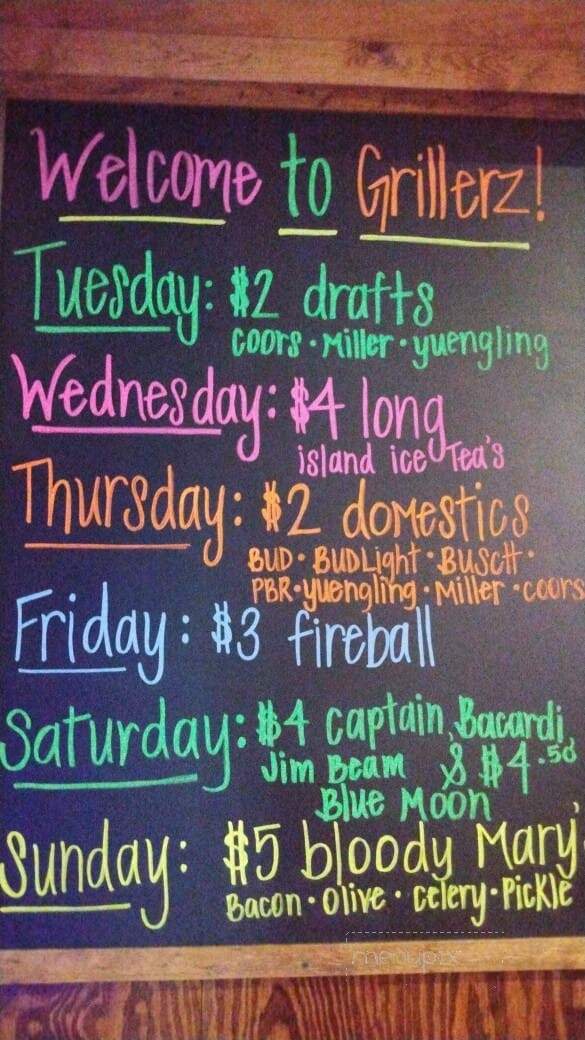 Welcome to Grillerz!
Tuesday: $2 drafts
Coors • Miller • yuengling
Wednesday: $4 long
island ice Tea's
Thursday: $2 domestics
BUD • BUDLight • BUSCH •
PBR • yuengling • Miller • coors
Friday: $3 fireball
Saturday: $4 Captain, Bacardi,
Jim Beam & $4.50
Blue Moon
Sunday: $5 bloody Mary's
Bacon • Olive • Celery • Pickle
menupix